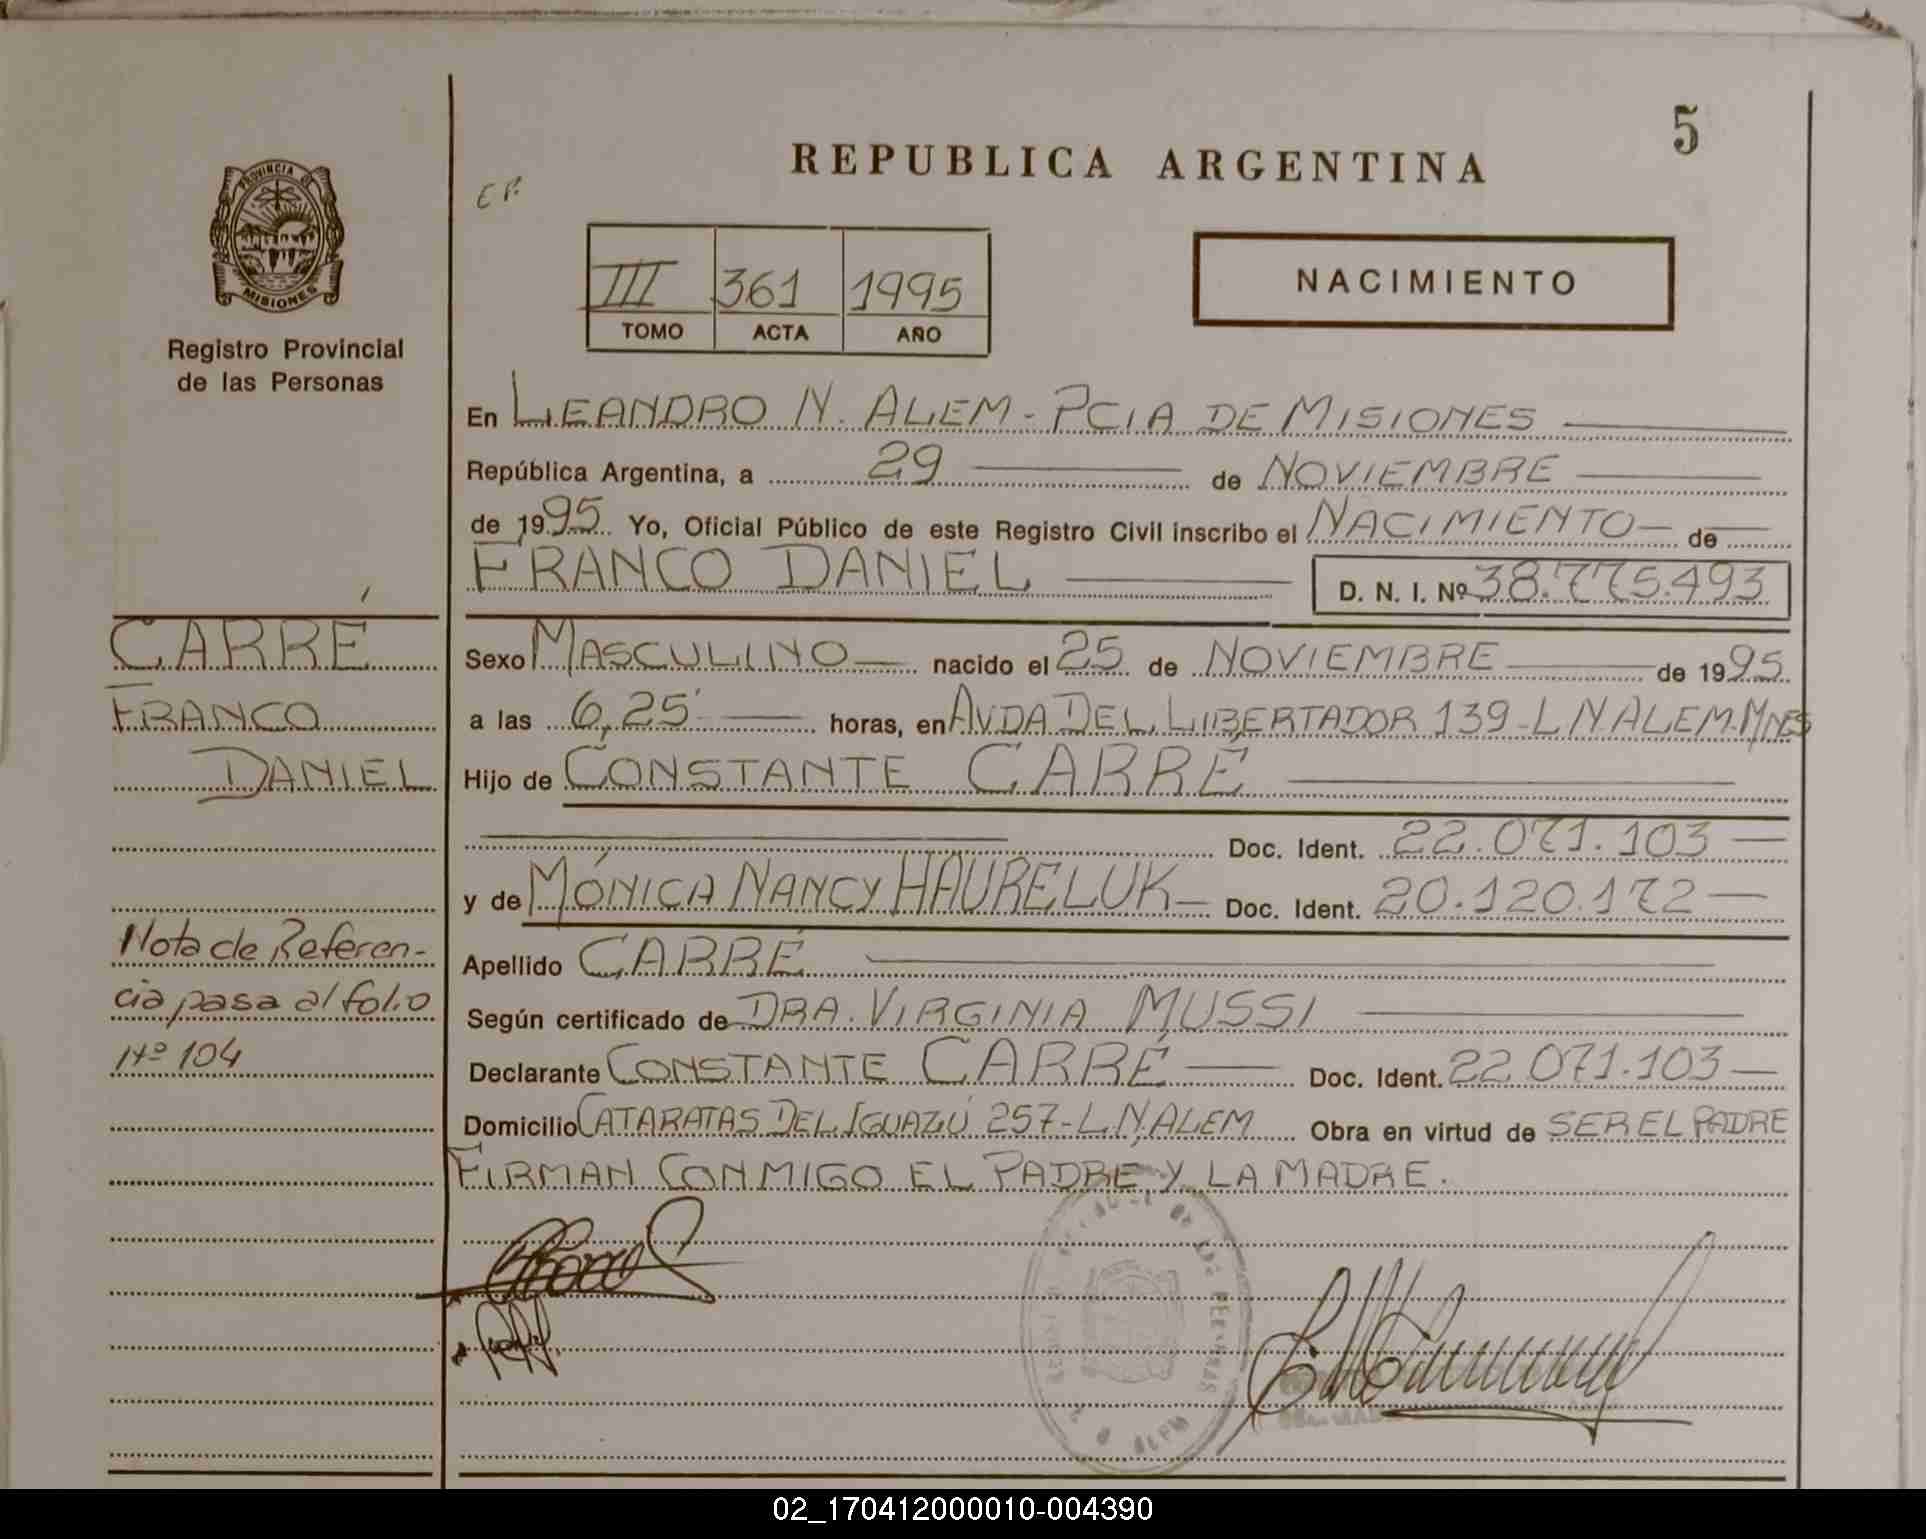 5
REPUBLICA ARGENTINA
PROVINCIA DE
MISIONES
Registro Provincial
de las Personas
III 361 1995
TOMO ACTA AÑO
NACIMIENTO
En LEANDRO N. ALEM - PCIA DE MISIONES
República Argentina, a 29 de NOVIEMBRE
de 1995 Yo, Oficial Público de este Registro Civil inscribo el NACIMIENTO de
FRANCO DANIEL D. N. I. Nº 38.775.493
CARRÉ
FRANCO
DANIEL
Sexo MASCULINO nacido el 25 de NOVIEMBRE de 1995
a las 6,25 horas, en AVDA DEL LIBERTADOR 139-L N ALEM-MNES
Hijo de CONSTANTE CARRÉ
Doc. Ident. 22.071.103
y de MÓNICA NANCY HAURELUK Doc. Ident. 20.120.172
Nota de Referen-
cia pasa al folio
Nº 104
Apellido CARRÉ
Según certificado de DRA. VIRGINIA MUSSI
Declarante CONSTANTE CARRÉ Doc. Ident. 22.071.103
Domicilio CATARATAS DEL IGUAZÚ 257-L.N.ALEM Obra en virtud de SER EL PADRE
FIRMAN CONMIGO EL PADRE Y LA MADRE.
02_170412000010-004390